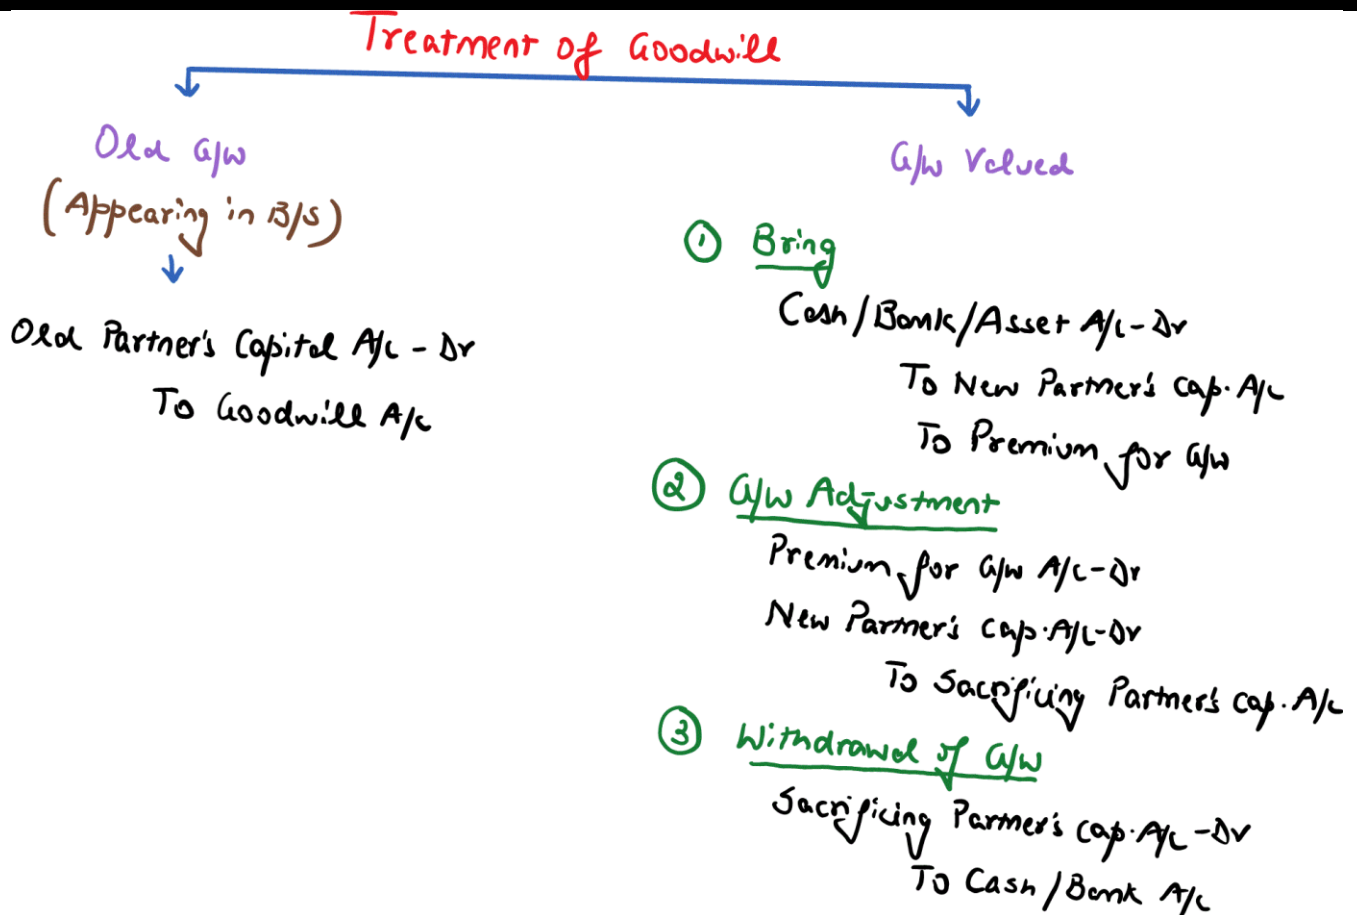 Treatment of Goodwill
Old G/W
(Appearing in B/S)
Old Partner's Capital A/c - Dr
To Goodwill A/c
G/W Valued
① Bring
Cash/Bank/Asset A/c - Dr
To New Partner's Cap. A/c
To Premium for G/W
② G/W Adjustment
Premium for G/W A/c - Dr
New Partner's Cap. A/c - Dr
To Sacrificing Partner's Cap. A/c
③ Withdrawal of G/W
Sacrificing Partner's Cap. A/c - Dr
To Cash/Bank A/c